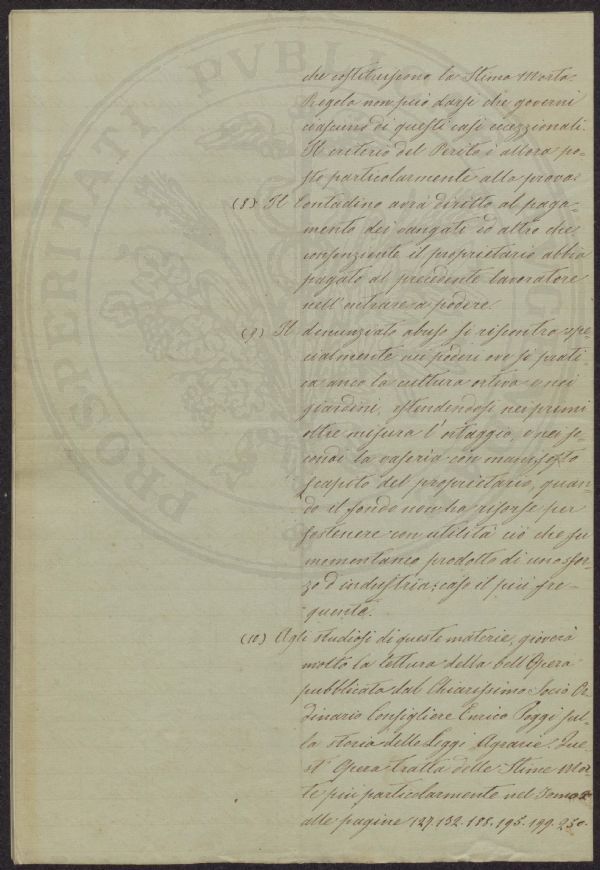 che costituiscono la Stima Morta.
Regola non può darsi che governi
ciascuno di questi casi eccezzionali.
Il criterio del Perito è allora po-
sto particolarmente alla prova.
(8) Il Contadino avrà diritto al paga-
mento dei vangati ed altro che
consenziente il proprietario abbia
pagato al precedente lavoratore
nell'entrare a podere.
(9) Il denunziato abuso si riscontra spe-
cialmente nei poderi ove si prati
ca anco la cultura ortiva e nei
giardini, estendendosi nei primi
oltre misura l'ortaggio, e nei se-
condi la vaseria con manifesto
scapito del proprietario, quan-
do il fondo non ha risorse per
sostenere con utilità ciò che fu
momentaneo prodotto di uno sfor-
zo d'industria; caso il più fre-
quente.
(10) Agli studiosi di queste materie, gioverà
molto la lettura della bell'Opera
pubblicata dal Chiarissimo Socio Or
dinario Consigliere Enrico Poggi sul-
la storia delle Leggi Agrarie. Que-
st'Opera tratta delle Stime Mor-
te più particolarmente nel Tomo 2
alle pagine 127. 132. 188. 195. 199. 250.
PROSPERITATI PVBLICAE